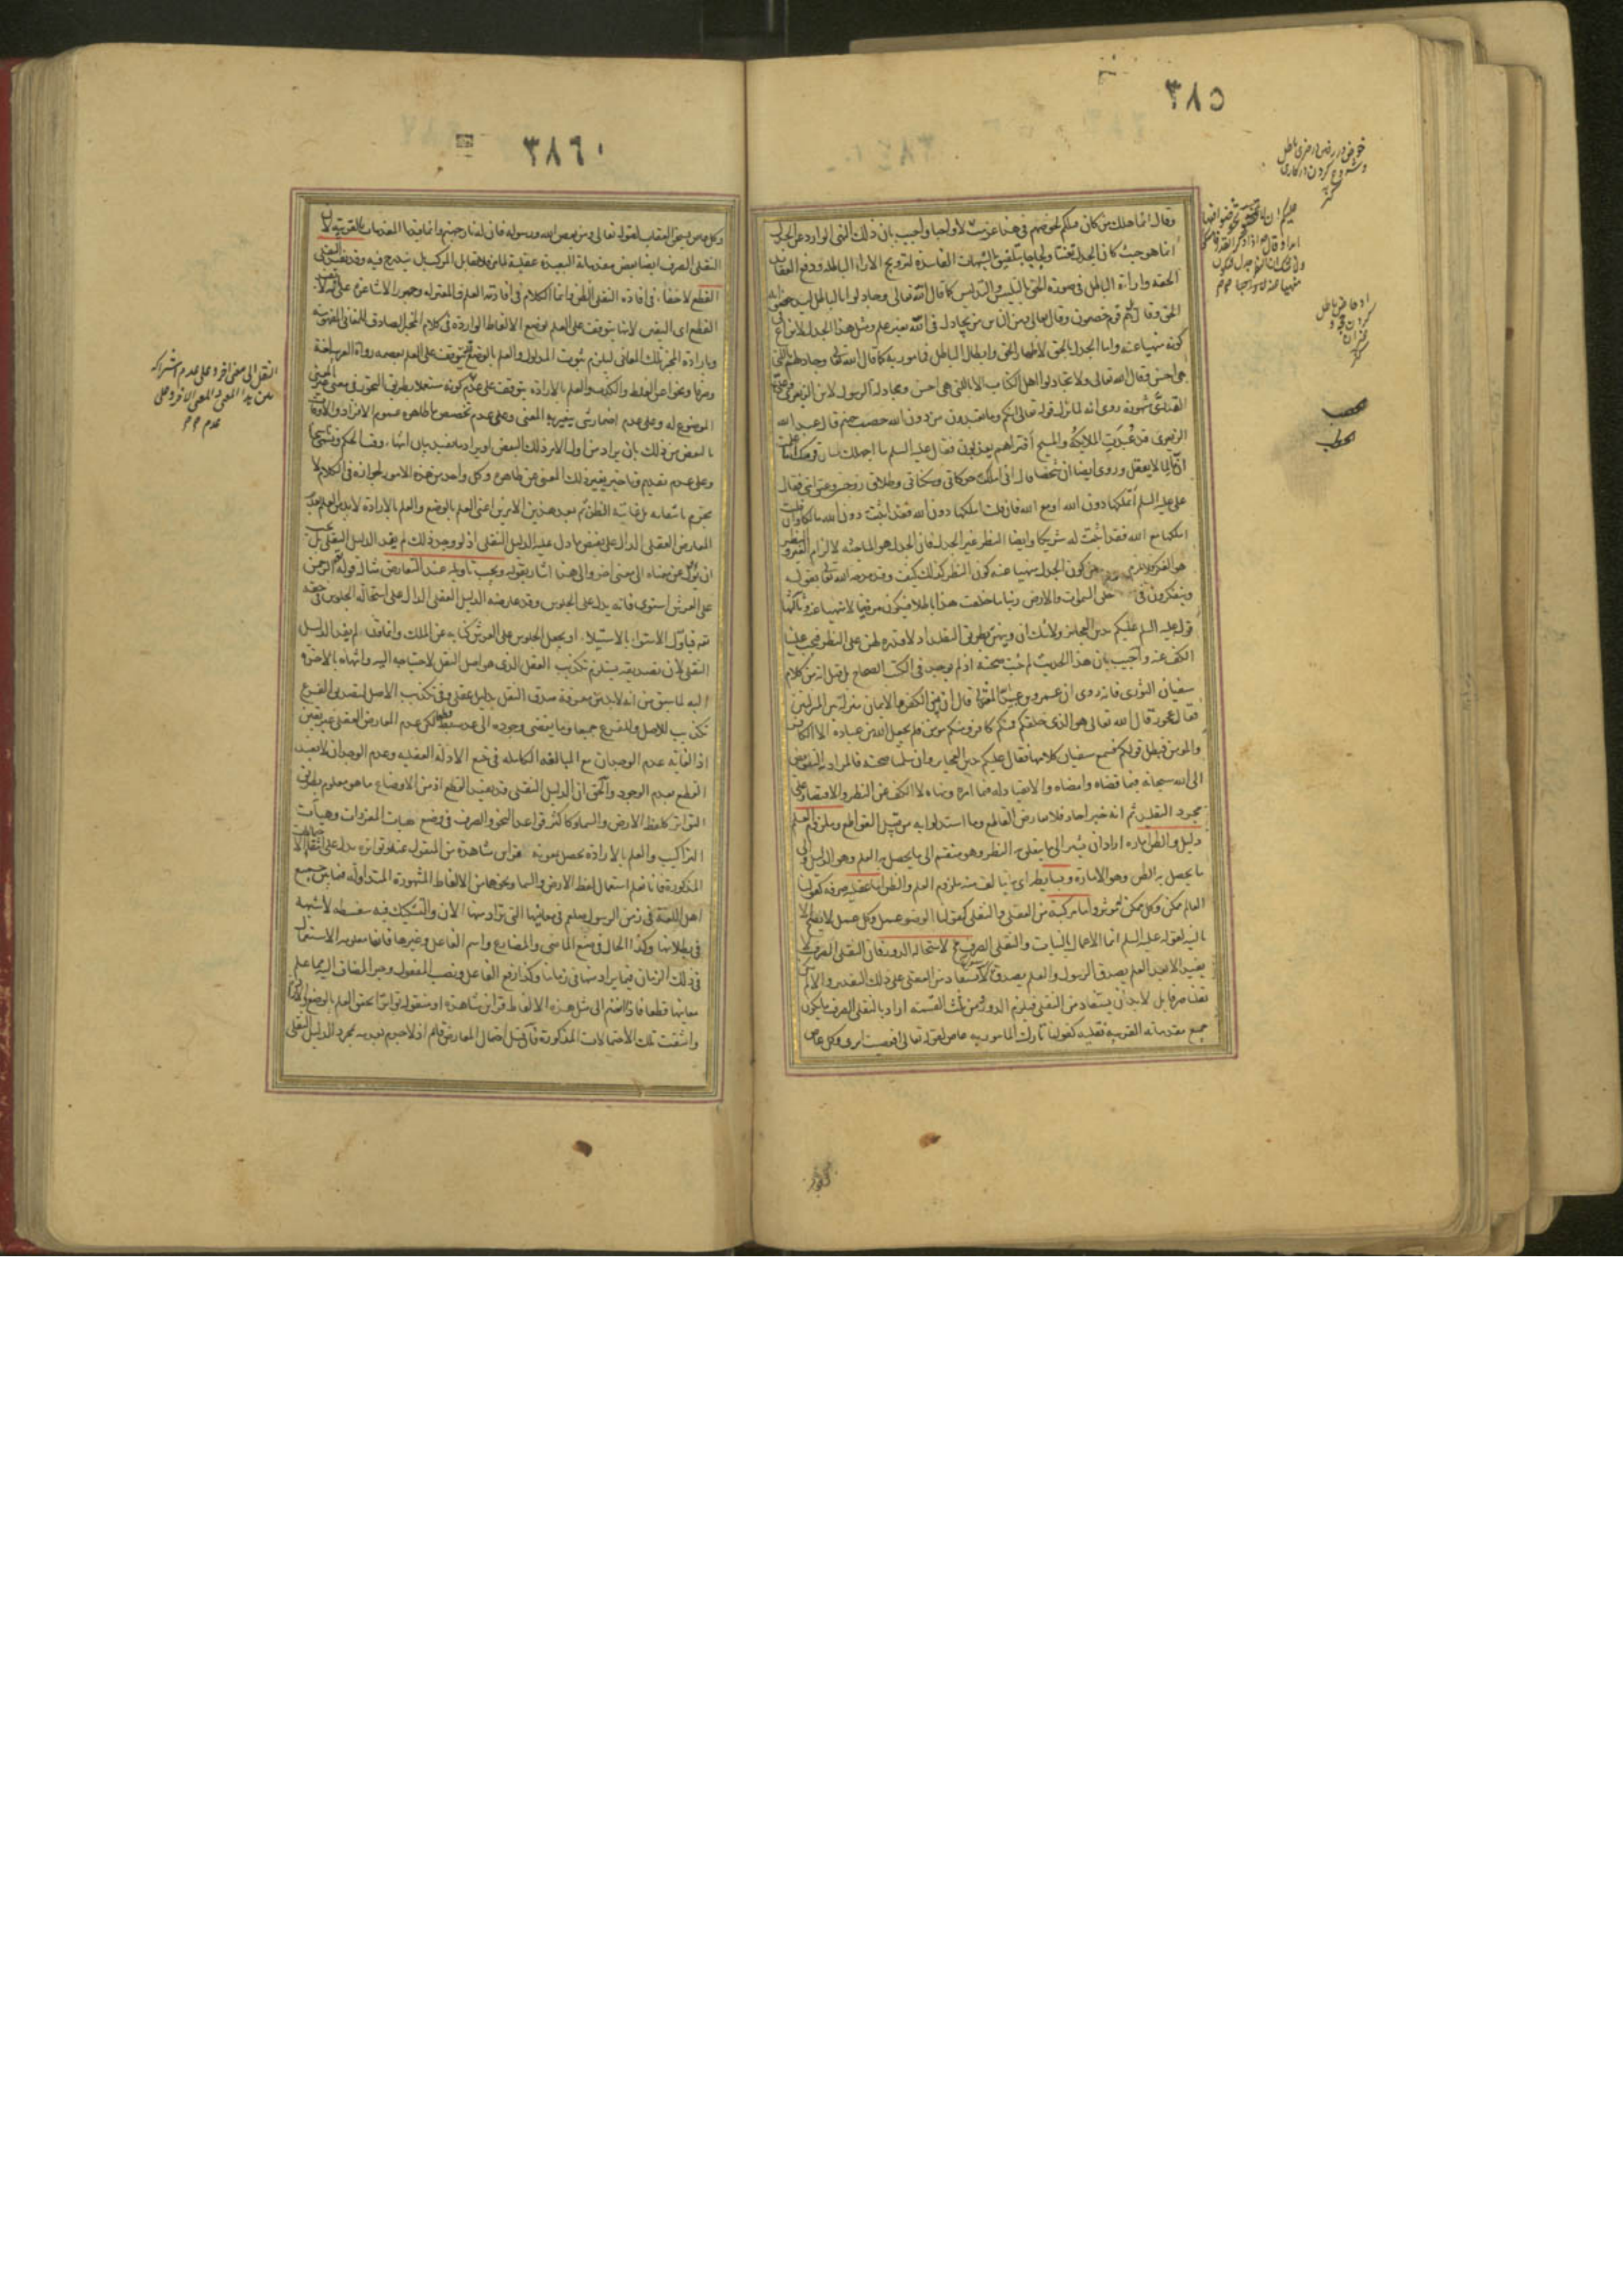 ٣٨٥
وقال انما هلك من كان قبلكم لخوضهم في هذا عزمت لا واجيب بان ذلك النهي الوارد عن الجدل
انما هو حيث كان الجدل تعنتا ولجاجا بتلفيق الشبهات الفاسدة لترويج الاراء الباطلة ودفع العقايد
الحقه واراءة الباطل في صورة الحق بالتلبيس والتدليس كما قال الله تعالى وجادلوا بالباطل ليدحضوا به
الحق وقال بل هم قوم خصمون وقال تعالى ومن الناس من يجادل في الله بغير علم ومثل هذا الجدل لا نزاع في
كونه منهيا عنه واما الجدل بالحق لاظهار الحق وابطال الباطل فمأمور به كما قال الله تعالى وجادلهم بالتي
هي احسن وقال الله تعالى ولا تجادلوا اهل الكتاب الا بالتي هي احسن ومجادلة الرسول لابن الزبعرى
مشهورة روى انه لما نزل قوله تعالى انكم وما تعبدون من دون الله حصب جهنم قال عبد الله
الزبعرى قد عُبدت الملايكة والمسيح أفتراهم يعذبون فقال عليه السلم ما اجهلك بلسان قومك اما علمت
ان ما لما لا يعقل وروى ايضا ان شخصا قال اني املك حركاتي وسكناتي وطلاق زوجتي وعتق امتي فقال
علي عليه السلم أتملكها دون الله او مع الله فان قلت املكها دون الله فقد اثبت دون الله مالكا وان قلت
املكها مع الله فقد اثبت له شريكا وايضا النظر غير الجدل فان الجدل هو المباحثة لالزام الغير والنظر
هو الفكر فلا يلزم من كون الجدل منهيا عنه كون النظر كذلك كيف وقد مدحه الله تعالى بقوله
ويتفكرون في خلق السموات والارض ربنا ما خلقت هذا باطلا فيكون مرضيا لا منهيا عنه وثالثها
قوله عليه السلم عليكم بدين العجايز ولا شك ان دينهن بطريق التقليد اذ لا قدرة لهن على النظر فيجب علينا
الكف عنه واجيب بان هذا الحديث لم يثبت صحته اذ لم يوجد في الكتب الصحاح بل قيل انه من كلام
سفيان الثوري فانه روى ان عمرو بن عبيد المعتزلي قال ان بين الكفر والايمان منزلة بين المنزلتين
فقالت عجوز قال الله تعالى هو الذي خلقكم فمنكم كافر ومنكم مومن فلم يجعل الله من عباده الا الكافر
والمومن فبطل قولكم فسمع سفيان كلامها فقال عليكم بدين العجايز وان سلمنا صحته فالمراد به التفويض
الى الله سبحانه فيما قضاه وامضاه والانقياد له فيما امره ونهاه لا الكف عن النظر والاقتصار على
مجرد التقليد ثم انه خبر احاد فلا يعارض القاطع وما استدلوا به من قبيل القواطع وملزوم العلم
دليل والظن امارة اراد ان يشير الى ما يتعلق به النظر وهو منقسم الى ما يحصل به العلم وهو الدليل والى
ما يحصل به الظن وهو الامارة وبسايطه اي ما يتألف منه ملزوم العلم والظن اما عقلية صرفه كقولنا
العالم ممكن وكل ممكن له موثر واما مركبة من العقلي والنقلي كقولنا الوضوء عمل وكل عمل لا يصح الا
بالنية لقوله عليه السلم انما الاعمال بالنيات والنقلي الصرف محال لاستحالة الدور فان النقلي الصرف لا
يفيد الا بعد العلم بصدق الرسول والعلم بصدقه لا يستفاد من العقلي على ذلك التقدير والا لم يكن
نقليا صرفا بل لا بد ان يستفاد من النقلي فيلزم الدور ومن ثلث القسمة اراد بالنقلي الصرف ما يكون
جميع مقدماته القريبة نقليه كقولنا تارك المامور به عاص لقوله تعالى افعصيت امري وكل عاص
خوض در رفتن در چيزى باطل
و شروع كردن در كارى
حصب
الحطب
٣٨٦
وكل عاص يستحق العقاب لقوله تعالى ومن يعص الله ورسوله فان له نار جهنم وانما قيدنا المقدمات بالقريبة لان
النقلي الصرف ايضا بعض مقدماته البعيدة عقلية لما مر فلا يقابل المركب بل يندرج فيه وقد يفيد النقلي
القطع لا خفاء في افادة النقلي الظن وانما الكلام في افادته العلم فالمعتزله وجمهور الاشاعرة على انه لا يفيد
القطع اي اليقين لانها يتوقف على العلم بوضع الالفاظ الواردة في كلام المخبر الصادق للمعاني المفهومة
وبارادة المخبر تلك المعاني ليلزم ثبوت المدلول والعلم بالوضع يتوقف على العلم بعصمة رواة العربية لغة
وصرفا ونحوا عن الغلط والكذب والعلم بالارادة يتوقف على عدم كونه مستعملا بطريق التجوز في معنى غير المعنى
الموضوع له وعلى عدم اضمار شيء يتغير به المعنى وعلى عدم تخصيص ما ظاهره عموم الافراد والاوقات
بالبعض من ذلك بان يراد من اول الامر ذلك البعض او يراد ما يفيد بيان انتهاء وقت الحكم ويسمى نسخا
وعلى عدم تقديم وتاخير يغير ذلك المعنى عن ظاهره وكل واحد من هذه الامور لجوازه في الكلام لا
يجزم بانتفايه بل غايته الظن ثم بعد هذين الامرين اعني العلم بالوضع والعلم بالارادة لا بد من العلم بعدم
المعارض العقلي الدال على نقيض ما دل عليه الدليل النقلي اذ لو وجد ذلك لم يفد الدليل النقلي بل يجب
ان يؤول عن معناه الى معنى اخر والى هذا اشار بقوله ويجب تاويله عند التعارض مثاله قوله تعالى الرحمن
على العرش استوى فانه يدل على الجلوس وقد عارضه الدليل العقلي الدال على استحالة الجلوس في حقه
تعالى فياول الاستواء بالاستيلاء او بجعل الجلوس على العرش كناية عن الملك وانما لم يفد الدليل
النقلي لان تصديقه يستلزم تكذيب العقل الذي هو اصل النقل لاحتياجه اليه وانتهاءه بالاخرة
اليه لما سبق من انه لا بد من معرفة صدق النقل بدليل عقلي وفي تكذيب الاصل لتصديق الفرع
تكذيب للاصل والفرع جميعا وما يفضي وجوده الى عدمه باطل لكن عدم المعارض العقلي غير يقيني
اذ الغاية عدم الوجدان مع المبالغة الكاملة في تتبع الادلة العقليه وعدم الوجدان لا يفيد
القطع بعدم الوجود والحق ان الدليل النقلي قد يفيد القطع اذ من الاوضاع ما هو معلوم بطريق
التواتر كلفظ الارض والسماء وكاكثر قواعد النحو والصرف في وضع هيات المفردات وهيات
التراكيب والعلم بالارادة يحصل بمعونة قراين مشاهدة من المنقول عنه او تواتره يدل على انتفاء الاحتمالات
المذكورة فانا نعلم استعمال لفظ الارض والسماء ونحوها من الالفاظ المشهورة المتداوله فيما بين جميع
اهل اللغة في زمن الرسول صلعم في معانيها التي تراد منها الان والتشكيك فيه سفسطه لا شبهة
في بطلانها وكذا الحال في صيغ الماضي والمضارع واسم الفاعل وغيرها فانها معلومة الاستعمال
في ذلك الزمان فيما يراد منها في زماننا وكذا رفع الفاعل ونصب المفعول وجر المضاف اليه مما علم
معانيها قطعا فاذا انضم الى مثل هذه الالفاظ قراين مشاهدة او منقوله تواترا تحقق العلم بالوضع والارادة
وانتفت تلك الاحتمالات المذكورة فان قيل احتمال المعارض قايم اذ لا جزم بعدمه بمجرد الدليل النقلي
النقل الى معنى اخر وعلى عدم اشتراكه
بين هذا المعنى والمعنى الاخر وعلى
عدم